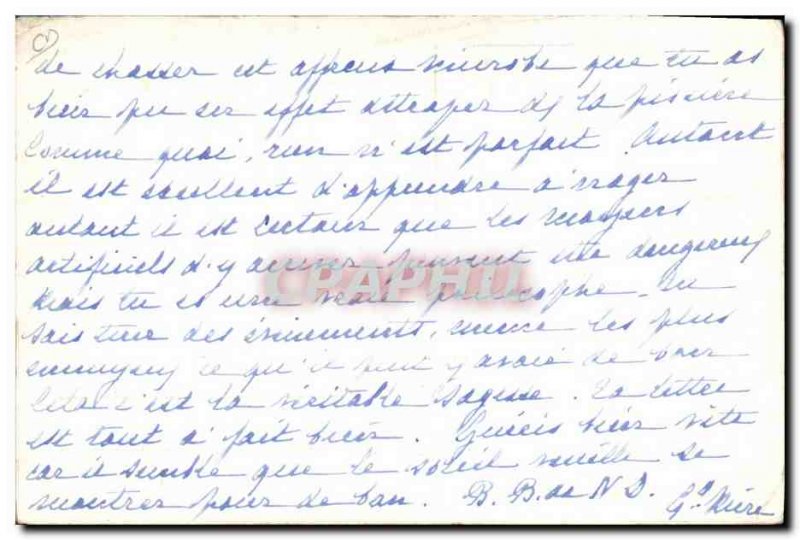 de chasser cet affreux microbe que tu as
bien pu en effet attraper ds la piscine
Comme quoi, rien n'est parfait. Autant
il est excellent d'apprendre à nager
autant il est certain que les moyens
artificiels d'y arriver peuvent être dangereux
Mais tu es une vraie philosophe. Tu
sais tirer des événements, même les plus
ennuyeux ce qu'il peut y avoir de bon
Cela c'est la véritable sagesse. Ta lettre
est tout à fait bien. Guéris bien vite
car il semble que le soleil veuille se
montrer pour de bon. B. B. de N D. Gd Mère
CPAPHIL